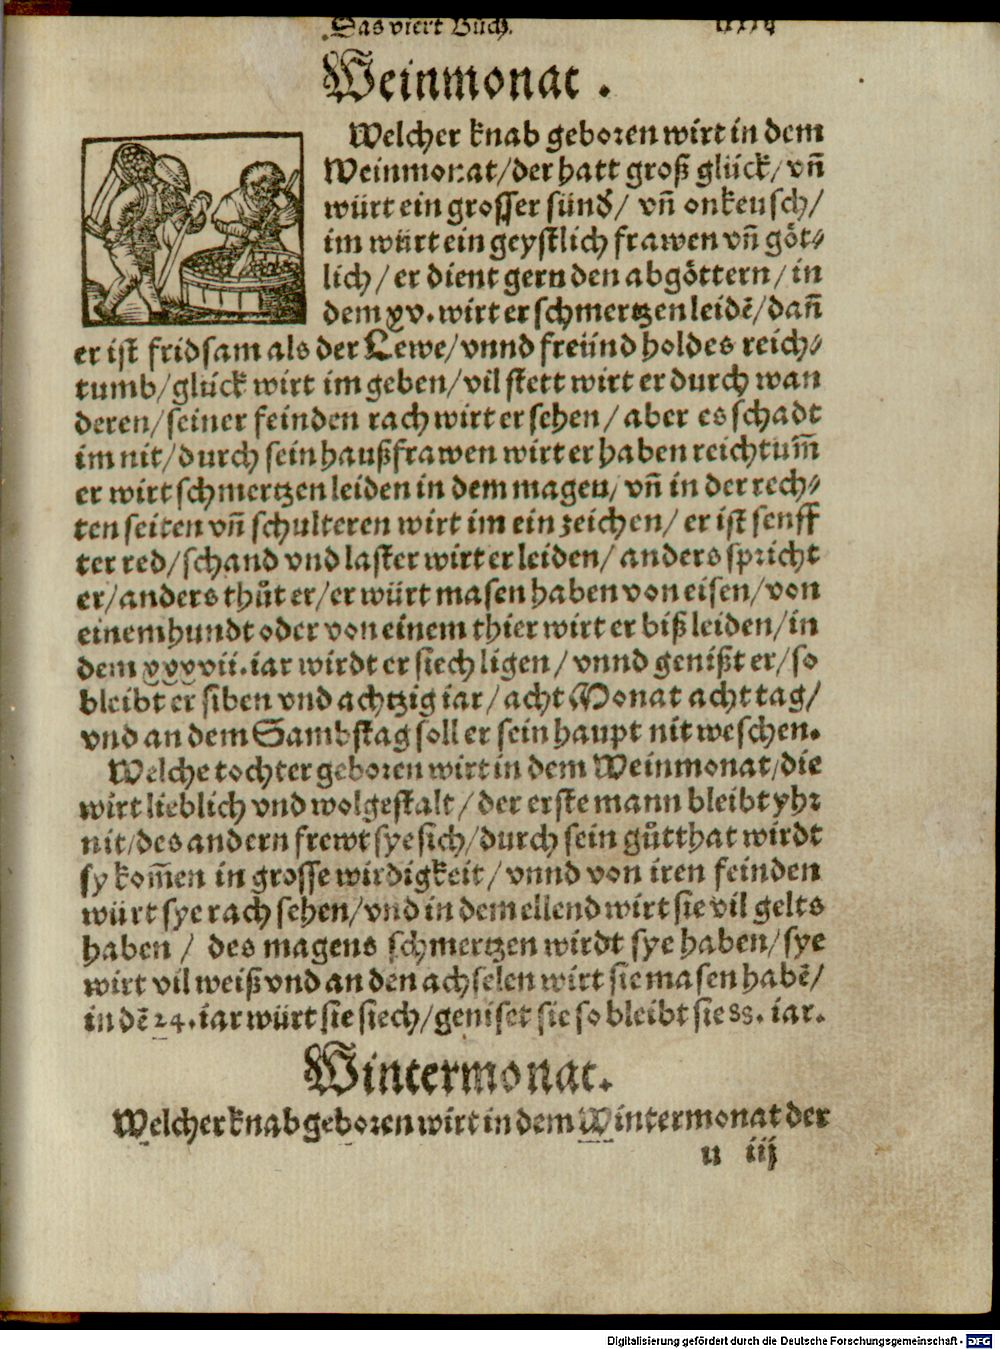 Das viert Buch.
Weinmonat.
Welcher knab geboren wirt in dem
Weinmonat/der hatt groß glück/vñ
würt ein grosser sünd/ vñ onkeusch/
im würt ein geystlich frawen vñ göt⸗
lich/er dient gern den abgöttern/in
dem xv. wirt er schmertzen leidẽ/dañ
er ist fridsam als der Lewe/vnnd freünd holdes reich⸗
tumb/glück wirt im geben/vil stett wirt er durch wan
deren/seiner feinden rach wirt er sehen/aber es schadt
im nit/durch sein haußfrawen wirt er haben reichtum̃
er wirt schmertzen leiden in dem magen/vñ in der rech⸗
ten seiten vñ schulteren wirt im ein zeichen/er ist senff
ter red/schand vnd laster wirt er leiden/anders spricht
er/anders thůt er/er würt masen haben von eisen/von
einem hundt oder von einem thier wirt er biß leiden/in
dem xxxvii. iar wirdt er siech ligen/vnnd genißt er/so
bleibt er siben vnd achtzig iar/acht Monat acht tag/
vnd an dem Sambstag soll er sein haupt nit weschen.
Welche tochter geboren wirt in dem Weinmonat/die
wirt lieblich vnd wolgestalt/der erste mann bleibt yhr
nit/des andern frewt sye sich/durch sein gůtthat wirdt
sy kom̃en in grosse wirdigkeit/vnnd von iren feinden
würt sye rach sehen/vnd in dem ellend wirt sie vil gelts
haben/ des magens schmertzen wirdt sye haben/sye
wirt vil weiß vnd an den achselen wirt sie masen habẽ/
in dẽ 24. iar würt sie siech/geniset sie so bleibt sie 88. iar.
Wintermonat.
Welcher knab geboren wirt in dem Wintermonat der
u iij
Digitalisierung gefördert durch die Deutsche Forschungsgemeinschaft - DFG